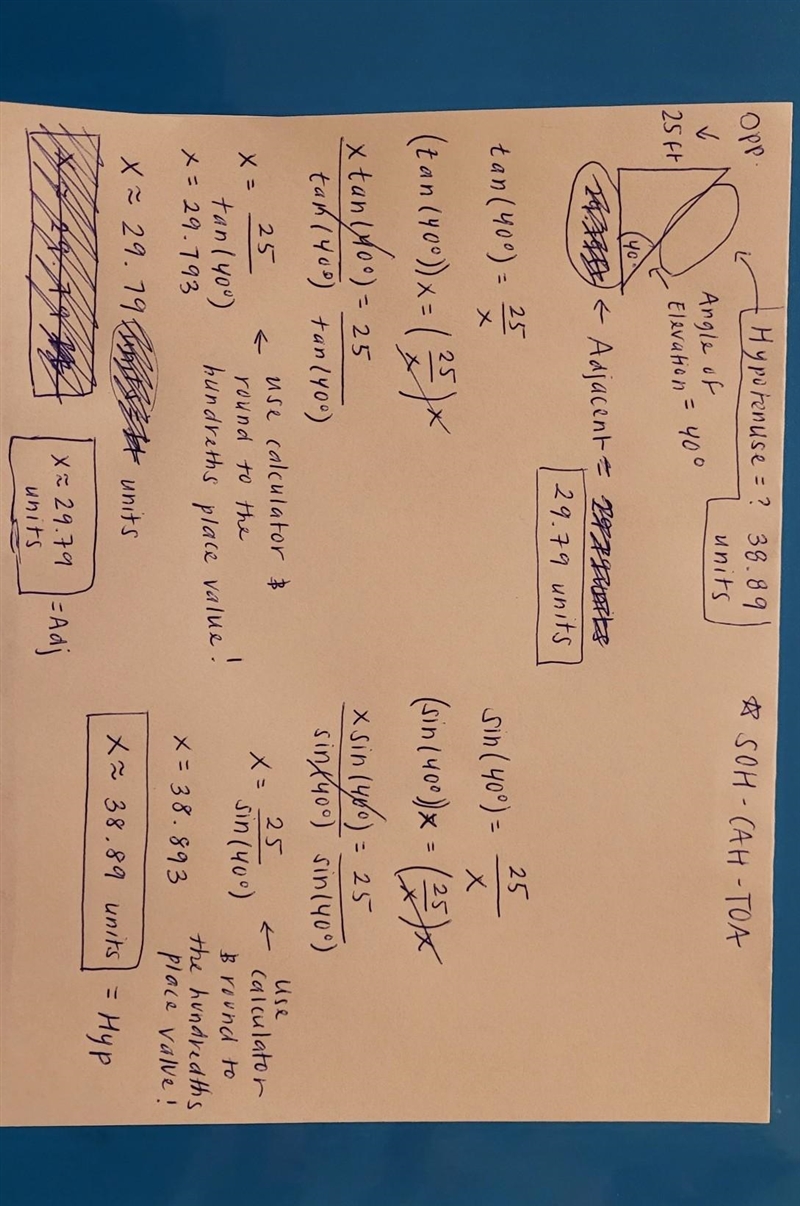 Opp.
↓
25 ft
40°
Hypotenuse = ? 38.89
units
Angle of
Elevation = 40°
← Adjacent =
29.79 units
☆ SOH-CAH-TOA
tan(40°) = 25/x
(tan(40°))x = (25/x)x
x tan(40°)/tan(40°) = 25/tan(40°)
x = 25/tan(40°)
← use calculator &
round to the
hundreths place value!
x = 29.793
x ≈ 29.79 units
x ≈ 29.79
units
= Adj
sin(40°) = 25/x
(sin(40°))x = (25/x)x
x sin(40°)/sin(40°) = 25/sin(40°)
x = 25/sin(40°)
← use
calculator
& round to
the hundredths
place value!
x = 38.893
x ≈ 38.89 units = Hyp